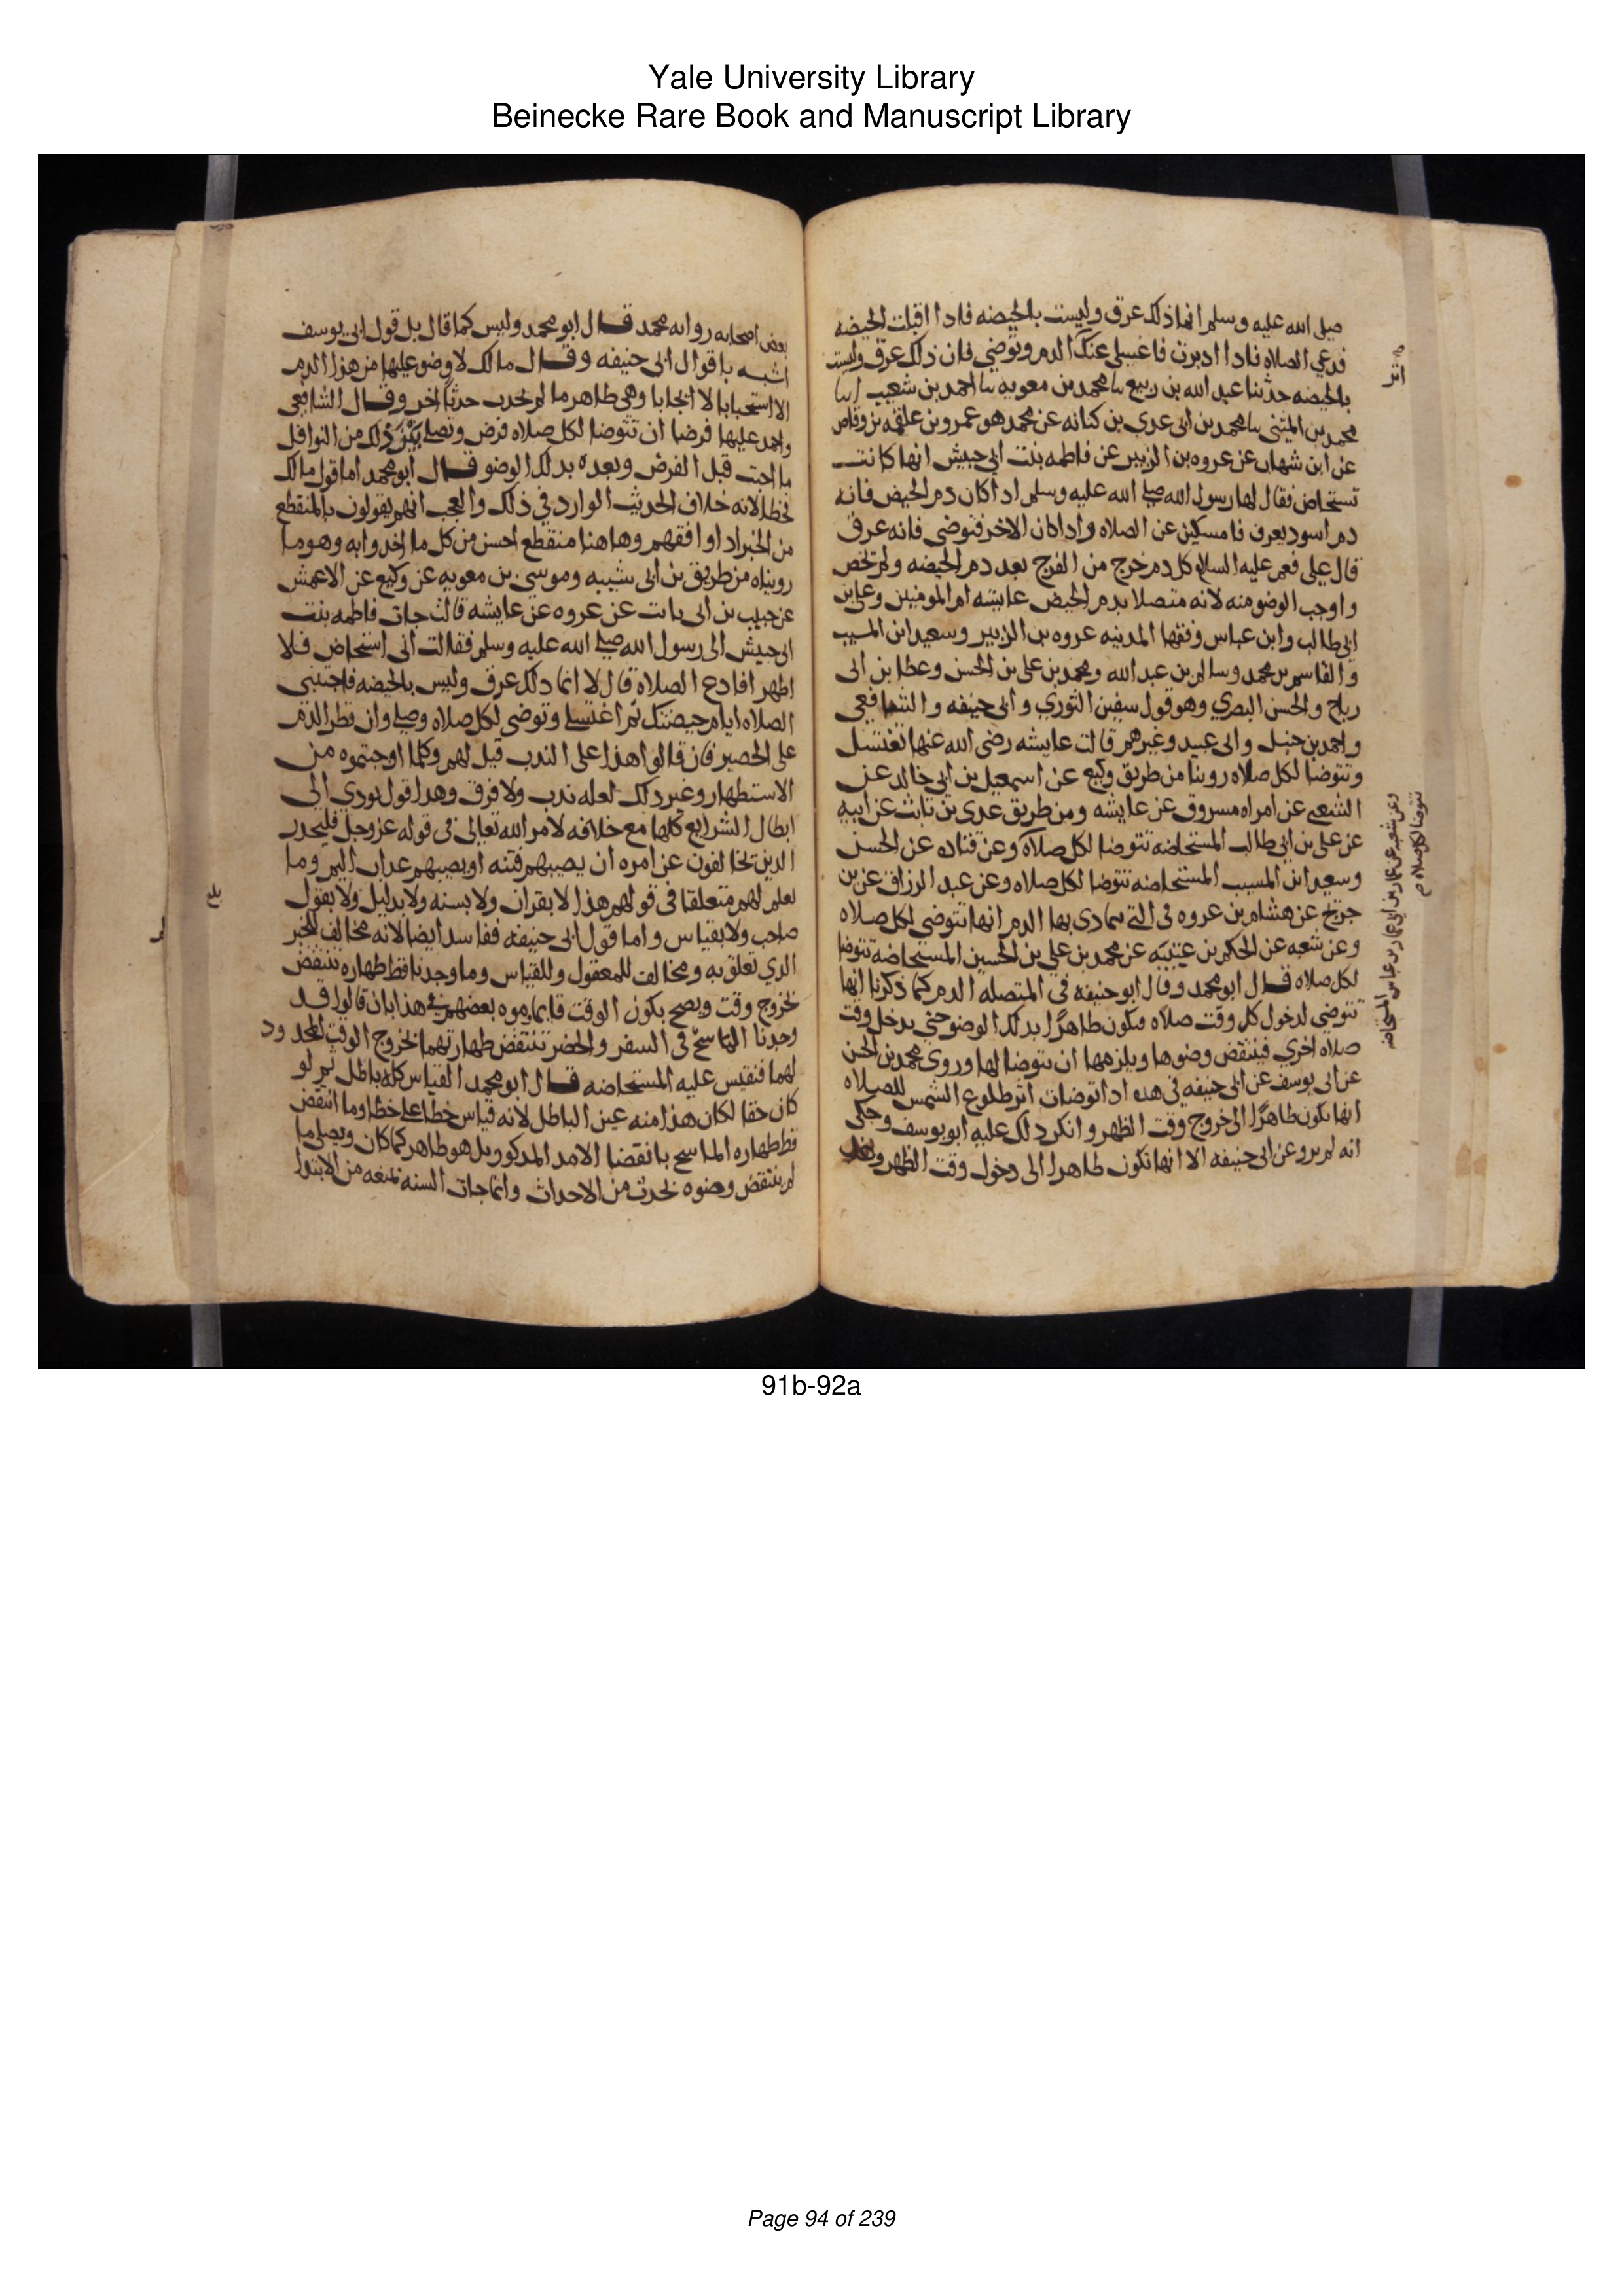 Yale University Library
Beinecke Rare Book and Manuscript Library
صلى الله عليه وسلم انما ذلك عرق وليست بالحيضه فاذا اقبلت الحيضه
فدعي الصلاه فاذا ادبرت فاغسلي عنك الدم وتوضي فان ذلك عرق وليست
بالحيضه حدثنا عبد الله بن ربيع نا محمد بن معويه نا احمد بن شعيب انا
محمد بن المثنى نا محمد بن ابي عدي بن كنانه عن محمد هو عمرو بن علقمه بن وقاص
عن ابن شهاب عن عروه بن الزبير عن فاطمه بنت ابي حبيش انها كانت
تستحاض فقال لها رسول الله صلى الله عليه وسلم اذا كان دم الحيض فانه
دم اسود يعرف فامسكي عن الصلاه واذا كان الاخر فتوضي فانه عرق
قال علي فعم عليه السلام كل دم خرج من الفرج بعد دم الحيضه ولم يخص
واوجب الوضو منه لانه متصلا بدم الحيض عايشه ام المومنين وعلي بن
ابي طالب وابن عباس وفقها المدينه عروه بن الزبير وسعيد ابن المسيب
والقاسم بن محمد وسالم بن عبد الله ومحمد بن علي بن الحسن وعطا بن ابي
رباح والحسن البصري وهو قول سفين الثوري وابي حنيفه والشافعي
واحمد بن حنبل وابي عبيد وغيرهم قالت عايشه رضي الله عنها تغتسل
وتتوضا لكل صلاه روينا من طريق وكيع عن اسمعيل بن ابي خالد عن
الشعبي عن امراه مسروق عن عايشه ومن طريق عدي بن ثابت عن ابيه
عن علي بن ابي طالب المستحاضه تتوضا لكل صلاه وعن قتاده عن الحسن
وسعيد ابن المسيب المستحاضه تتوضا لكل صلاه وعن عبد الرزاق عن بن
جريج عن هشام بن عروه في التي تمادى بها الدم انها تتوضي لكل صلاه
وعن شعبه عن الحكم بن عتيبه عن محمد بن علي بن الحسين المستحاضه تتوضا
لكل صلاه قال ابو محمد وقال ابو حنيفه في المتصله الدم كما ذكرنا انها
تتوضي لدخول كل وقت صلاه فتكون طاهرا بذلك الوضو حتى يدخل وقت
صلاه اخرى فينتقض وضوها ويلزمها ان تتوضا لها وروى محمد بن الحسن
عن ابي يوسف عن ابي حنيفه في هذه اذا توضات اثر طلوع الشمس للصلاه
انها تكون طاهرا الى خروج وقت الظهر وانكر ذلك عليه ابو يوسف وحكى
انه لم يرو عن ابي حنيفه الا انها تكون طاهرا الى دخول وقت الظهر
اثر
وعن شعبه عن عمار بن ابي عمار بن عباس المستحاضه
تتوضا لكل صلاه
بعض اصحابه روايه محمد قال ابو محمد وليس كما قال بل قول ابي يوسف
اشبه باقوال ابي حنيفه وقال مالك لا وضو عليها من هذا الدم
الا استحبابا لا ايجابا وهي طاهر ما لم تحدث حدثا اخر وقال الشافعي
واحمد عليها فرضا ان تتوضا لكل صلاه فرض وتصلي بين ذلك من النوافل
ما احبت قبل الفرض وبعده بذلك الوضو قال ابو محمد اما قول مالك
فخطا لانه خلاف الحديث الوارد في ذلك والعجب انهم يقولون بالمنقطع
من الخبر اذا وافقهم وهاهنا منقطع احسن من كل ما اخذوا به وهو ما
رويناه من طريق بن ابي شيبه وموسى بن معويه عن وكيع عن الاعمش
عن حبيب بن ابي ثابت عن عروه عن عايشه قالت جات فاطمه بنت
ابي حبيش الى رسول الله صلى الله عليه وسلم فقالت اني استحاض فلا
اطهر افادع الصلاه قال لا انما ذلك عرق وليس بالحيضه فاجتنبي
الصلاه ايام حيضتك ثم اغتسلي وتوضي لكل صلاه وصلي وان قطر الدم
على الحصير فان قالوا هذا على الندب قيل لهم وكلما اوجبتموه من
الاستظهار وغير ذلك لعله ندب ولا فرق وهذا قول يودي الى
ابطال الشرايع كلها مع خلافه لامر الله تعالى في قوله عز وجل فليحذر
الذين يخالفون عن امره ان يصيبهم فتنه او يصيبهم عذاب اليم وما
نعلم لهم متعلقا في قولهم هذا لا بقران ولا بسنه ولا بدليل ولا بقول
صاحب ولا بقياس واما قول ابي حنيفه ففاسد ايضا لانه مخالف للخبر
الذي تعلق به ومخالف للمعقول وللقياس وما وجدنا قط طهاره تنتقض
بخروج وقت ويصح بكون الوقت قايما وموه بعضهم في هذا بان قالوا قد
وجدنا الماسح في السفر والحضر تنتقض طهارتهما بخروج الوقت المحدود
لهما فنقيس عليه المستحاضه قال ابو محمد القياس كله باطل ثم لو
كان حقا لكان هذا منه عين الباطل لانه قياس خطا على خطا وما انتقض
قط طهاره الماسح بانقضا الامد المذكور بل هو طاهر كما كان ويصلي ما
لم ينتقض وضوه بحدث من الاحداث وانما جات السنه بمنعه من الابتدا
بلغ
91b-92a
Page 94 of 239